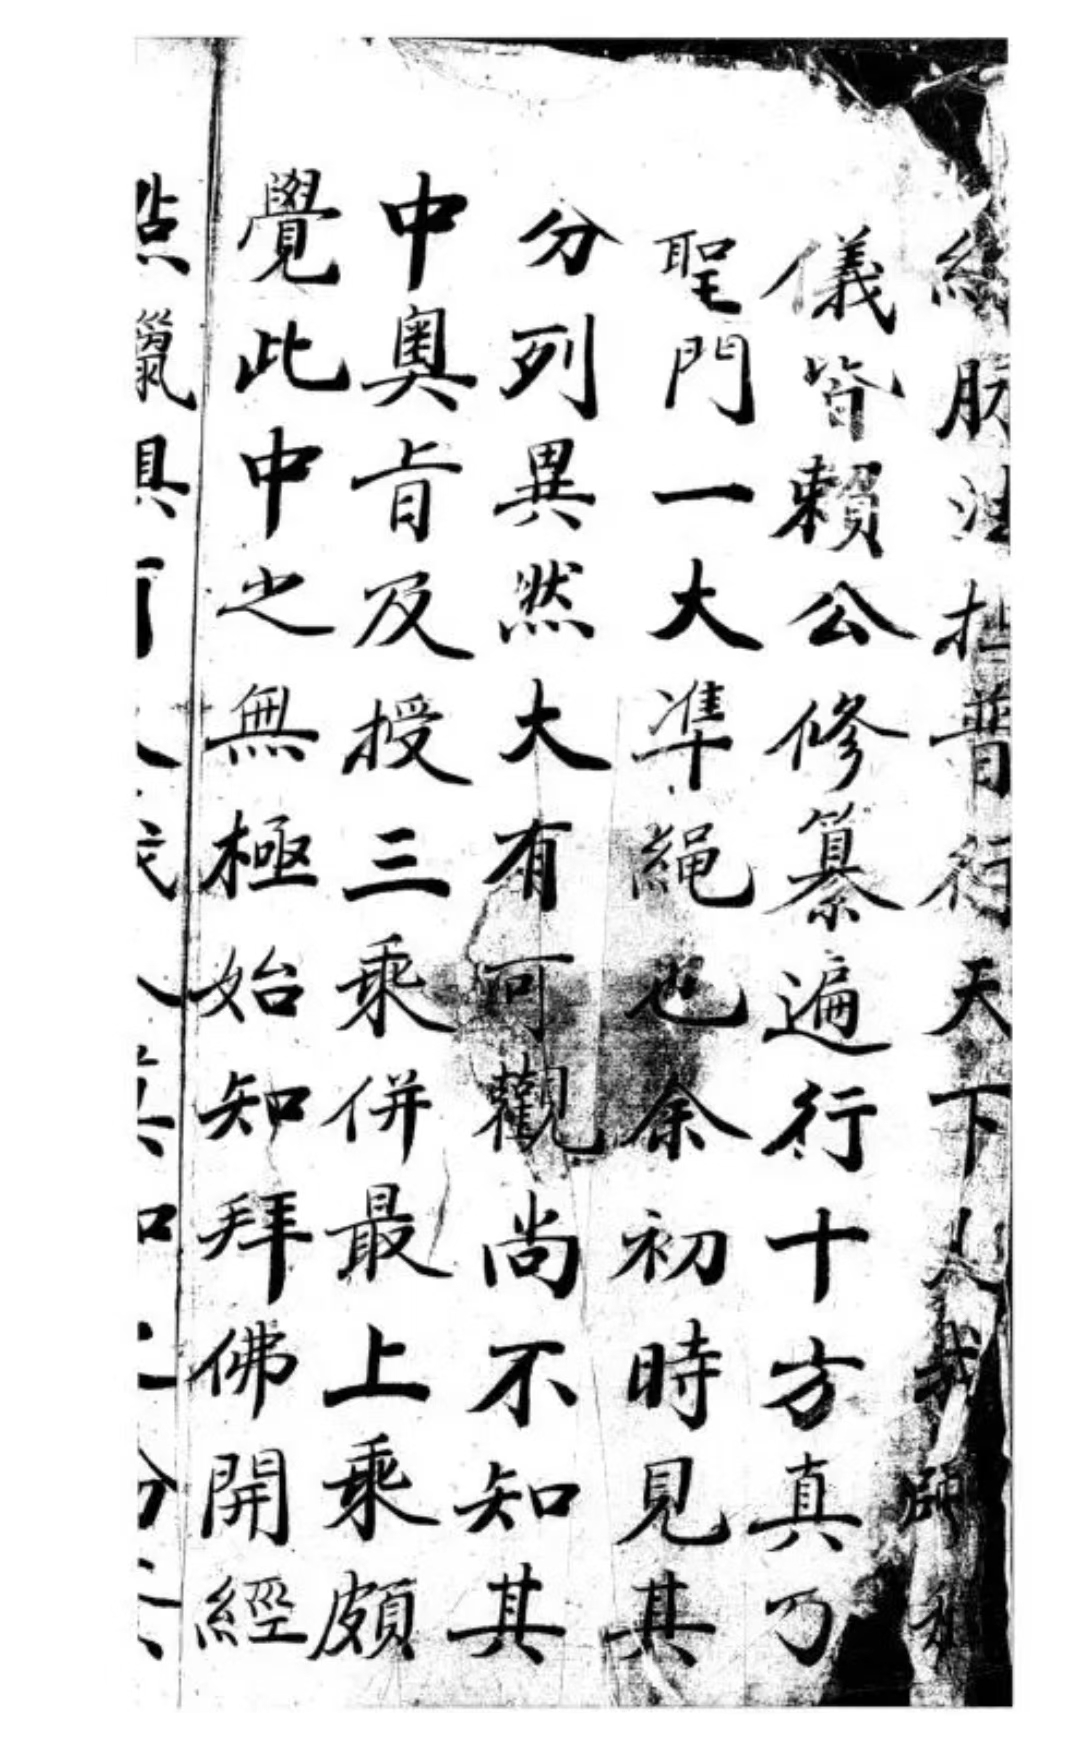 法 普行天下 我師祖
儀皆賴公修纂遍行十方真乃
聖門一大準繩也余初時見其
分列異然大有可觀尚不知其
中奧旨及授三乘併最上乘頗
覺此中之無極始知拜佛開經
點 具